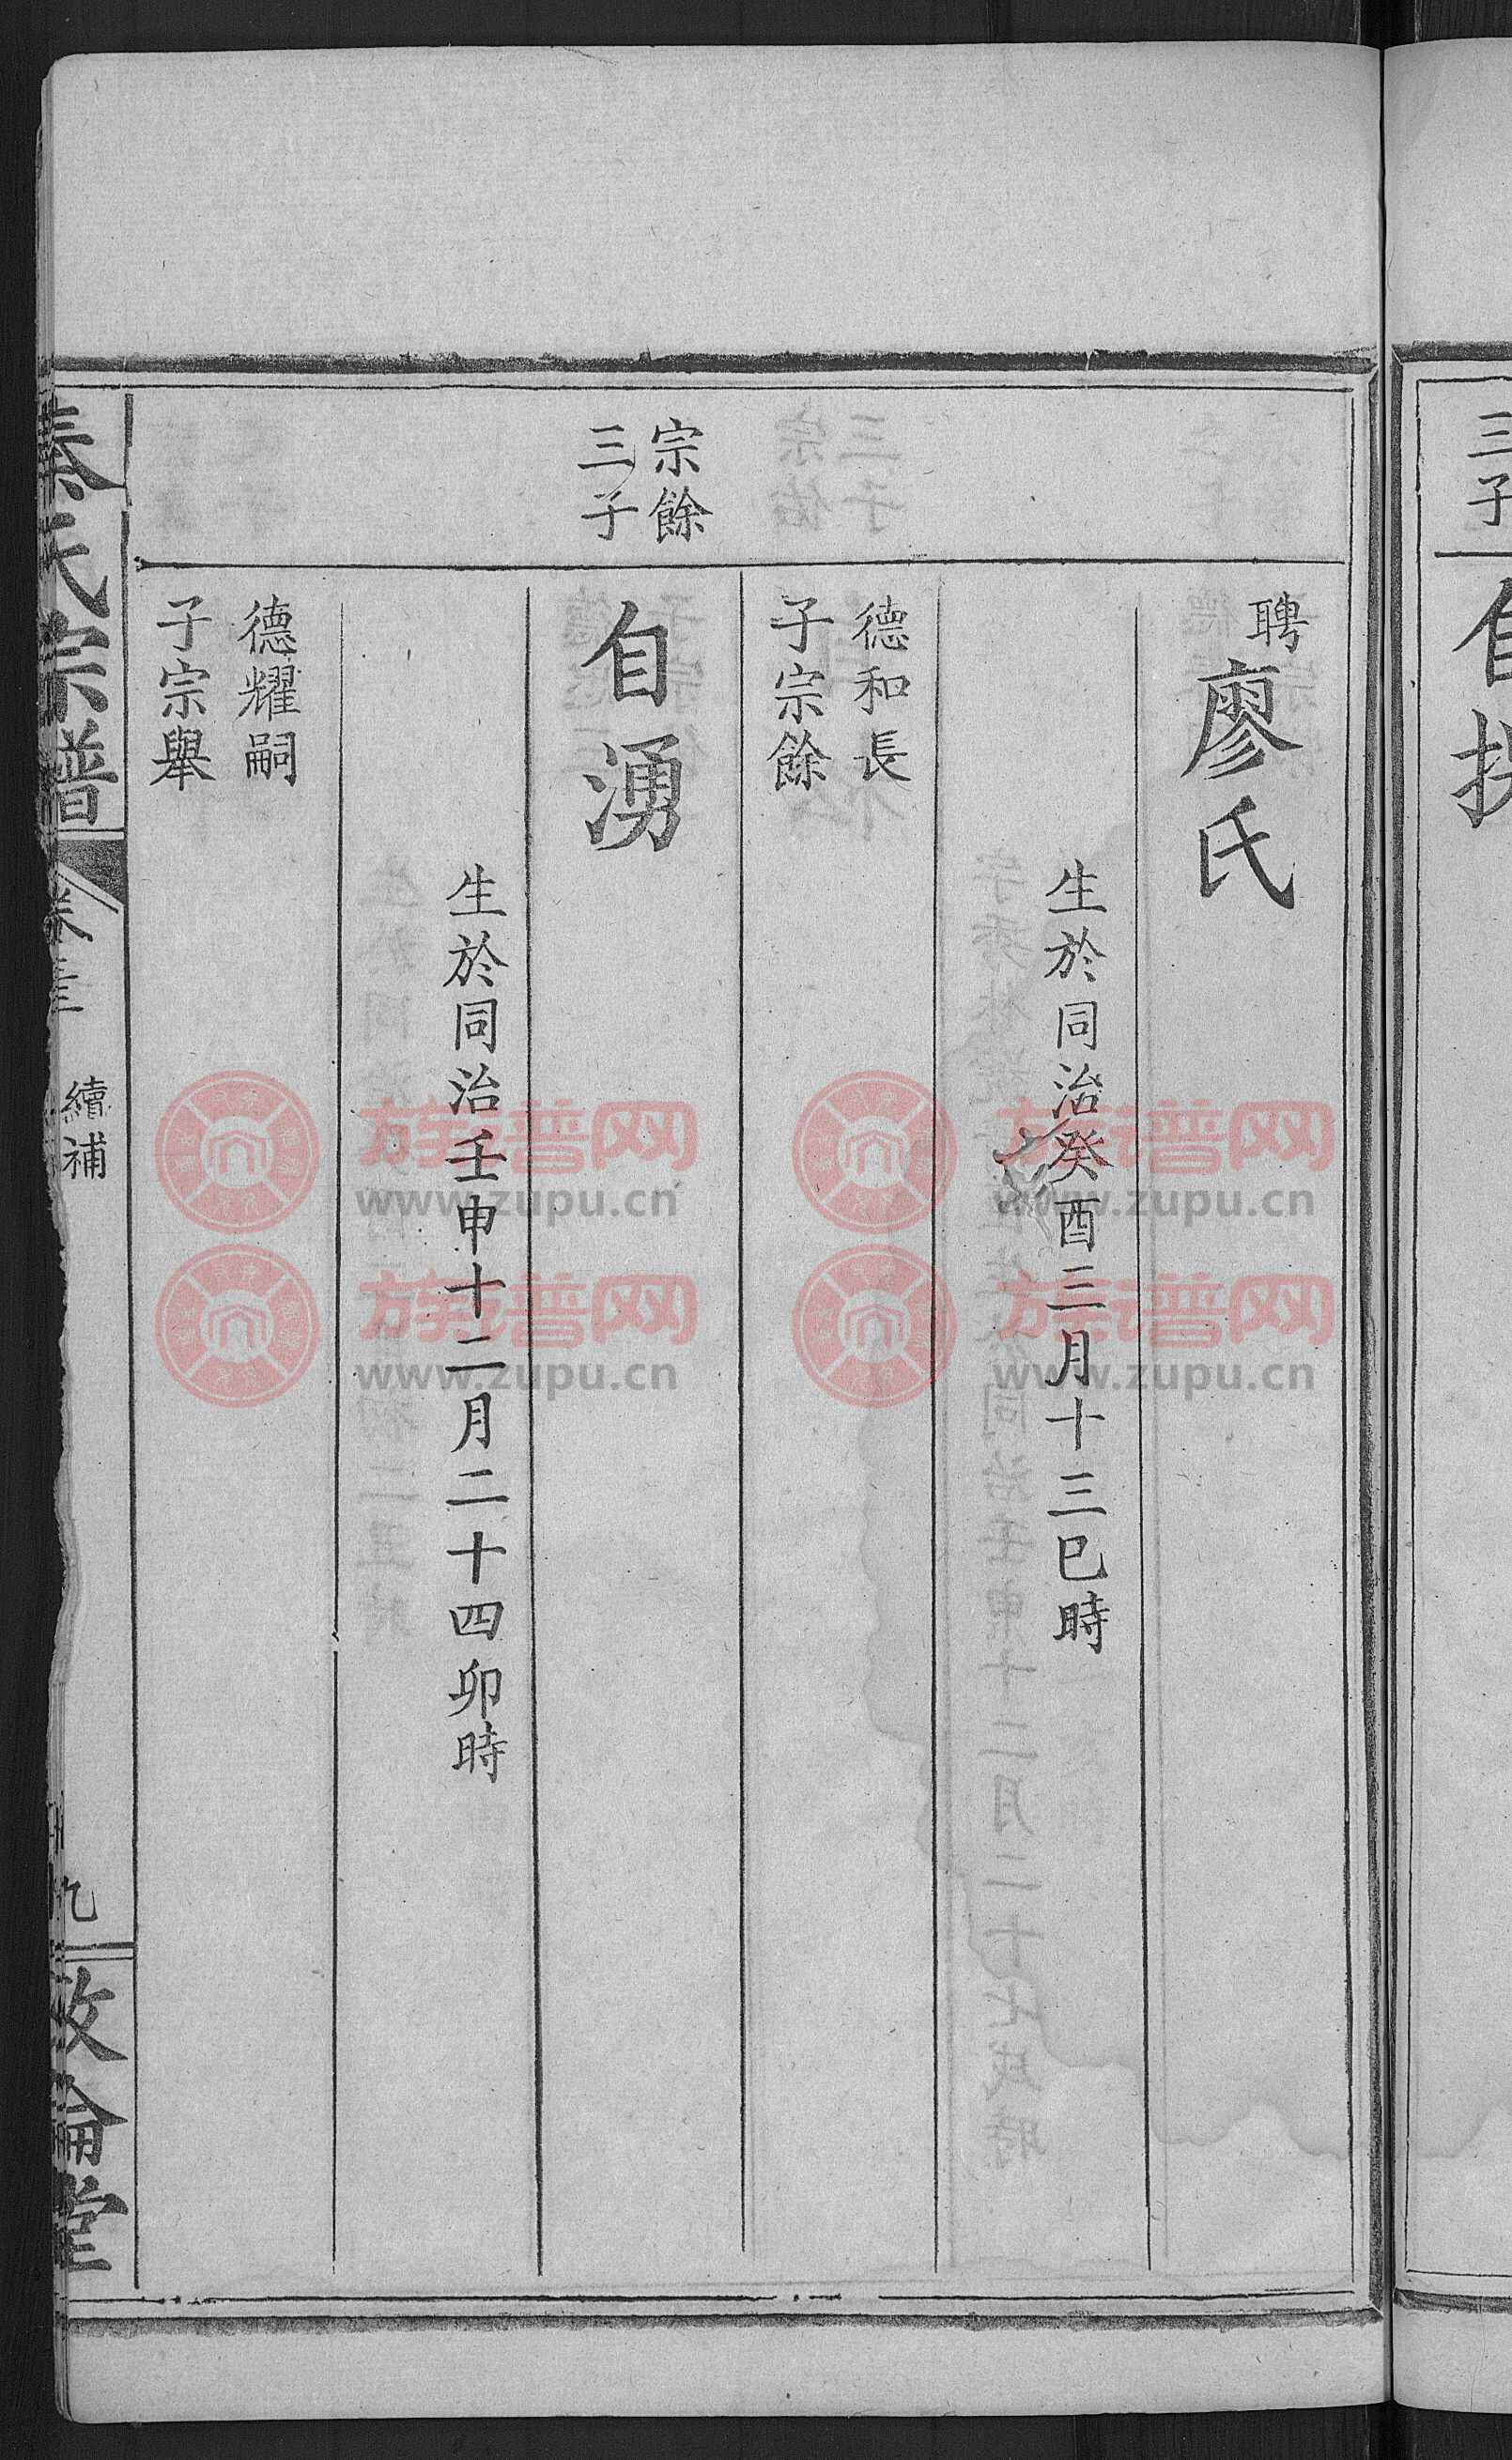 三子
自
聘廖氏
生於同治癸酉三月十三巳時
德和長
子宗餘
宗餘
三子
自湧
生於同治壬申十二月二十四卯時
德耀嗣
子宗舉
秦氏宗譜
續補
九
敦倫堂
族谱网
www.zupu.cn
族谱网
www.zupu.cn
族谱网
www.zupu.cn
族谱网
www.zupu.cn